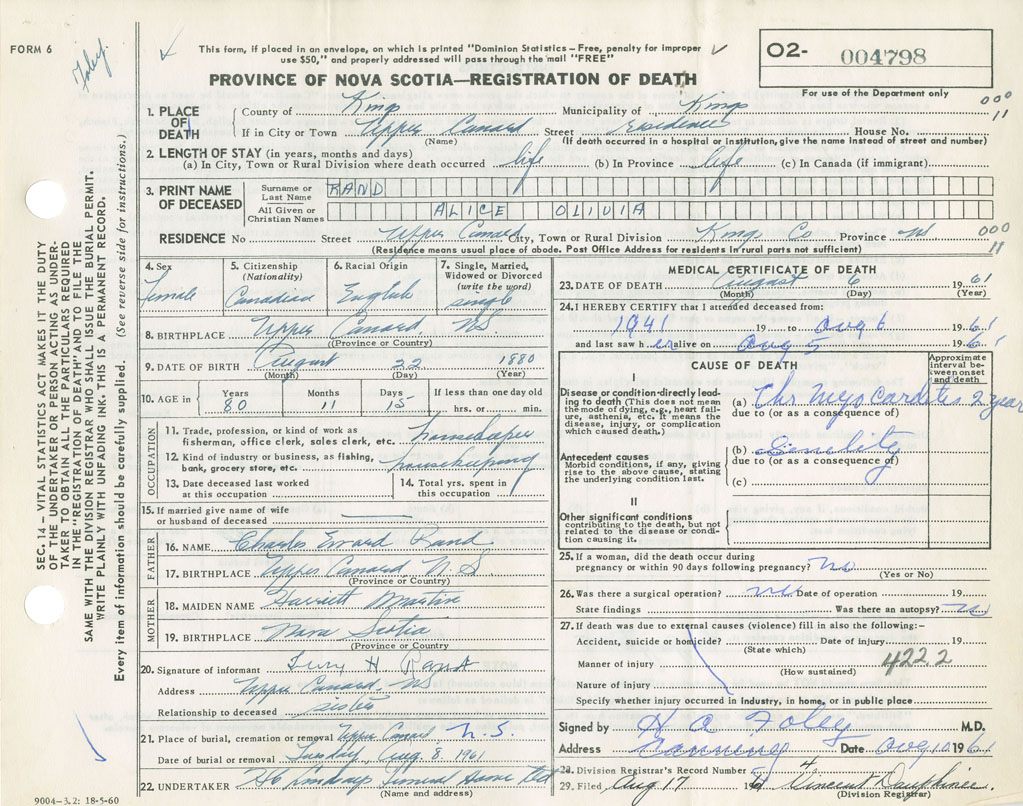 FORM 6
Foley.
This form, if placed in an envelope, on which is printed "Dominion Statistics – Free, penalty for improper
use $50," and properly addressed will pass through the mail "FREE"
PROVINCE OF NOVA SCOTIA—REGISTRATION OF DEATH
O2- 004798
For use of the Department only
000
11
SEC. 14 – VITAL STATISTICS ACT MAKES IT THE DUTY
OF THE UNDERTAKER OR PERSON ACTING AS UNDER-
TAKER TO OBTAIN ALL THE PARTICULARS REQUIRED
IN THE "REGISTRATION OF DEATH" AND TO FILE THE
SAME WITH THE DIVISION REGISTRAR WHO SHALL ISSUE THE BURIAL PERMIT.
WRITE PLAINLY WITH UNFADING INK. THIS IS A PERMANENT RECORD.
Every item of information should be carefully supplied. (See reverse side for instructions.)
1. PLACE OF DEATH
County of Kings Municipality of Kings
If in City or Town Upper Canard Street Residence House No.
(Name) (If death occurred in a hospital or institution, give the name instead of street and number)
2. LENGTH OF STAY (in years, months and days)
(a) In City, Town or Rural Division where death occurred life (b) In Province life (c) In Canada (if immigrant)
3. PRINT NAME OF DECEASED
Surname or Last Name RAND
All Given or Christian Names ALICE OLIVIA
RESIDENCE No Street Upper Canard City, Town or Rural Division Kings Co Province NS
000
11
(Residence means usual place of abode. Post Office Address for residents in rural parts not sufficient)
4. Sex Female
5. Citizenship (Nationality) Canadian
6. Racial Origin English
7. Single, Married, Widowed or Divorced (write the word) single
8. BIRTHPLACE Upper Canard, NS.
(Province or Country)
9. DATE OF BIRTH August 22 1880
(Month) (Day) (Year)
10. AGE in Years 80 Months 11 Days 15 If less than one day old hrs. or min.
OCCUPATION
11. Trade, profession, or kind of work as fisherman, office clerk, sales clerk, etc. housekeeper
12. Kind of industry or business, as fishing, bank, grocery store, etc. housekeeping
13. Date deceased last worked at this occupation
14. Total yrs. spent in this occupation
15. If married give name of wife or husband of deceased
FATHER
16. NAME Charles Rand
17. BIRTHPLACE Upper Canard N.S.
(Province or Country)
MOTHER
18. MAIDEN NAME Harriett Martin
19. BIRTHPLACE Nova Scotia
(Province or Country)
20. Signature of informant H Rand
Address Upper Canard, NS
Relationship to deceased sister
21. Place of burial, cremation or removal Upper Canard N.S.
Date of burial or removal Tuesday, Aug. 8, 1961
22. UNDERTAKER Lindsay Funeral Home Ltd
(Name and address)
9004-3.2: 18-5-60
MEDICAL CERTIFICATE OF DEATH
23. DATE OF DEATH August 6 1961
(Month) (Day) (Year)
24. I HEREBY CERTIFY that I attended deceased from:
1941 19 to Aug 6 1961
and last saw her alive on Aug 5 1961
CAUSE OF DEATH
Approximate interval between onset and death
I
Disease or condition directly leading to death (This does not mean the mode of dying, e.g., heart failure, asthenia, etc. It means the disease, injury, or complication which caused death.)
(a) Chr Myocarditis 2 year
due to (or as a consequence of)
Antecedent causes
Morbid conditions, if any, giving rise to the above cause, stating the underlying condition last.
(b) Senility
due to (or as a consequence of)
(c)
II
Other significant conditions
contributing to the death, but not related to the disease or condition causing it.
25. If a woman, did the death occur during
pregnancy or within 90 days following pregnancy? No
(Yes or No)
26. Was there a surgical operation? no Date of operation 19
State findings Was there an autopsy? no
27. If death was due to external causes (violence) fill in also the following:–
Accident, suicide or homicide? Date of injury 19
(State which)
Manner of injury 4222
(How sustained)
Nature of injury
Specify whether injury occurred in Industry, in home, or in public place
Signed by H A Foley M.D.
Address Canning Date Aug 10 1961
28. Division Registrar's Record Number
29. Filed Aug 17 1961 Vincent Dauphinee
(Division Registrar)